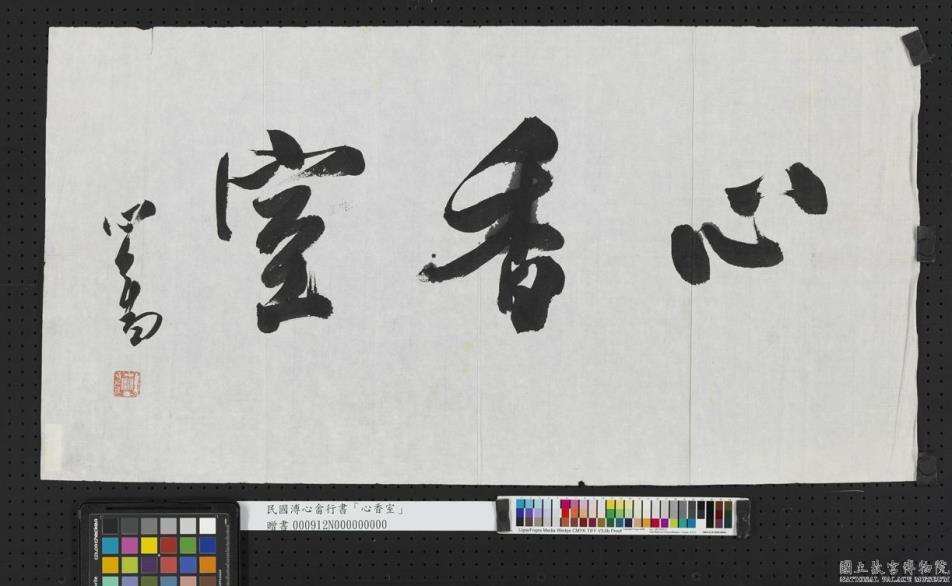 心香室
心畬
民國溥心畬行書「心香室」
贈書 000912N000000000
國立故宮博物院
NATIONAL PALACE MUSEUM